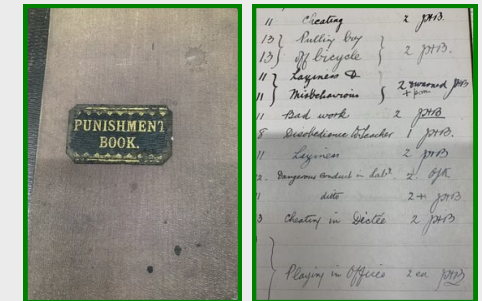 PUNISHMENT
BOOK.
11 Cheating 2 JHB.
13 } Pulling boy
13 } off bicycle } 2 JHB.
11 } Layiness &
11 } Misbehaviour } 2 JHB
11 Bad work 2 JHB.
8 Disobedience to Teacher 1 JHB.
11 Layiness 2 JHB
Dangerous conduct in Lab. 2
11 ditto 2 JHB
3 Cheating in Dictée 2 JHB
Playing in Office 2 ea JHB